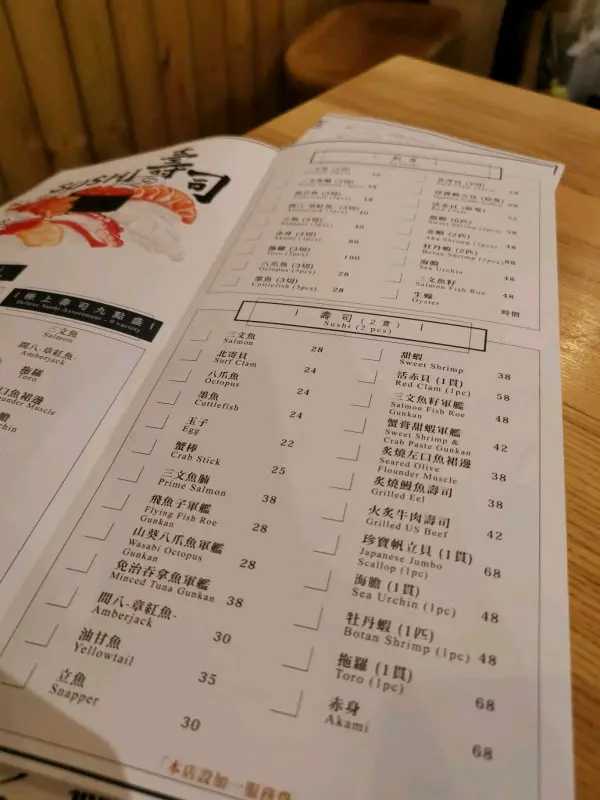 壽司
SUSHI
極上壽司九點盛
Deluxe Sushi Assortment - 9 variety
三文魚
Salmon
間八-章紅魚-
Amberjack
拖羅
Toro
左口魚裙邊
Flounder Muscle
刺身
三文魚 (3切)
八爪魚 (3切)
Octopus (3pcs)
28
墨魚 (3切)
Cuttlefish (3pcs)
28
拖羅 (3切)
Toro (3pcs)
190
赤身 (3切)
Akami (3pcs)
甜蝦 (6匹)
赤蝦 (2匹)
牡丹蝦 (2匹)
Botan Shrimp (2pcs)
海膽
Sea Urchin
48
三文魚籽
Salmon Fish Roe
48
生蠔
Oyster
時價
壽司 (2貫)
Sushi (2 pcs)
三文魚
Salmon
28
北寄貝
Surf Clam
24
八爪魚
Octopus
24
墨魚
Cuttlefish
24
玉子
Egg
22
蟹棒
Crab Stick
25
三文魚腩
Prime Salmon
38
飛魚子軍艦
Flying Fish Roe
Gunkan
28
山葵八爪魚軍艦
Wasabi Octopus
Gunkan
28
免治吞拿魚軍艦
Minced Tuna Gunkan
38
間八-章紅魚-
Amberjack
30
油甘魚
Yellowtail
35
立魚
Snapper
30
甜蝦
Sweet Shrimp
38
活赤貝 (1貫)
Red Clam (1pc)
58
三文魚籽軍艦
Salmon Fish Roe
Gunkan
48
蟹膏甜蝦軍艦
Sweet Shrimp &
Crab Paste Gunkan
42
炙燒左口魚裙邊
Seared Olive
Flounder Muscle
38
炙燒鰻魚壽司
Grilled Eel
38
火炙牛肉壽司
Grilled US Beef
42
珍寶帆立貝 (1貫)
Japanese Jumbo
Scallop (1pc)
68
海膽 (1貫)
Sea Urchin (1pc)
48
牡丹蝦 (1匹)
Botan Shrimp (1pc)
48
拖羅 (1貫)
Toro (1pc)
68
赤身
Akami
68
「本店設加一服務費